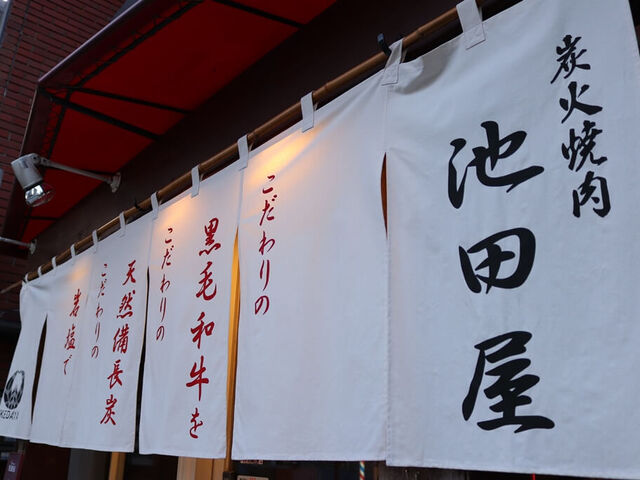 炭火焼肉
池田屋
こだわりの
黒毛和牛を
こだわりの
天然備長炭
こだわりの
岩塩で
IKEDAYA